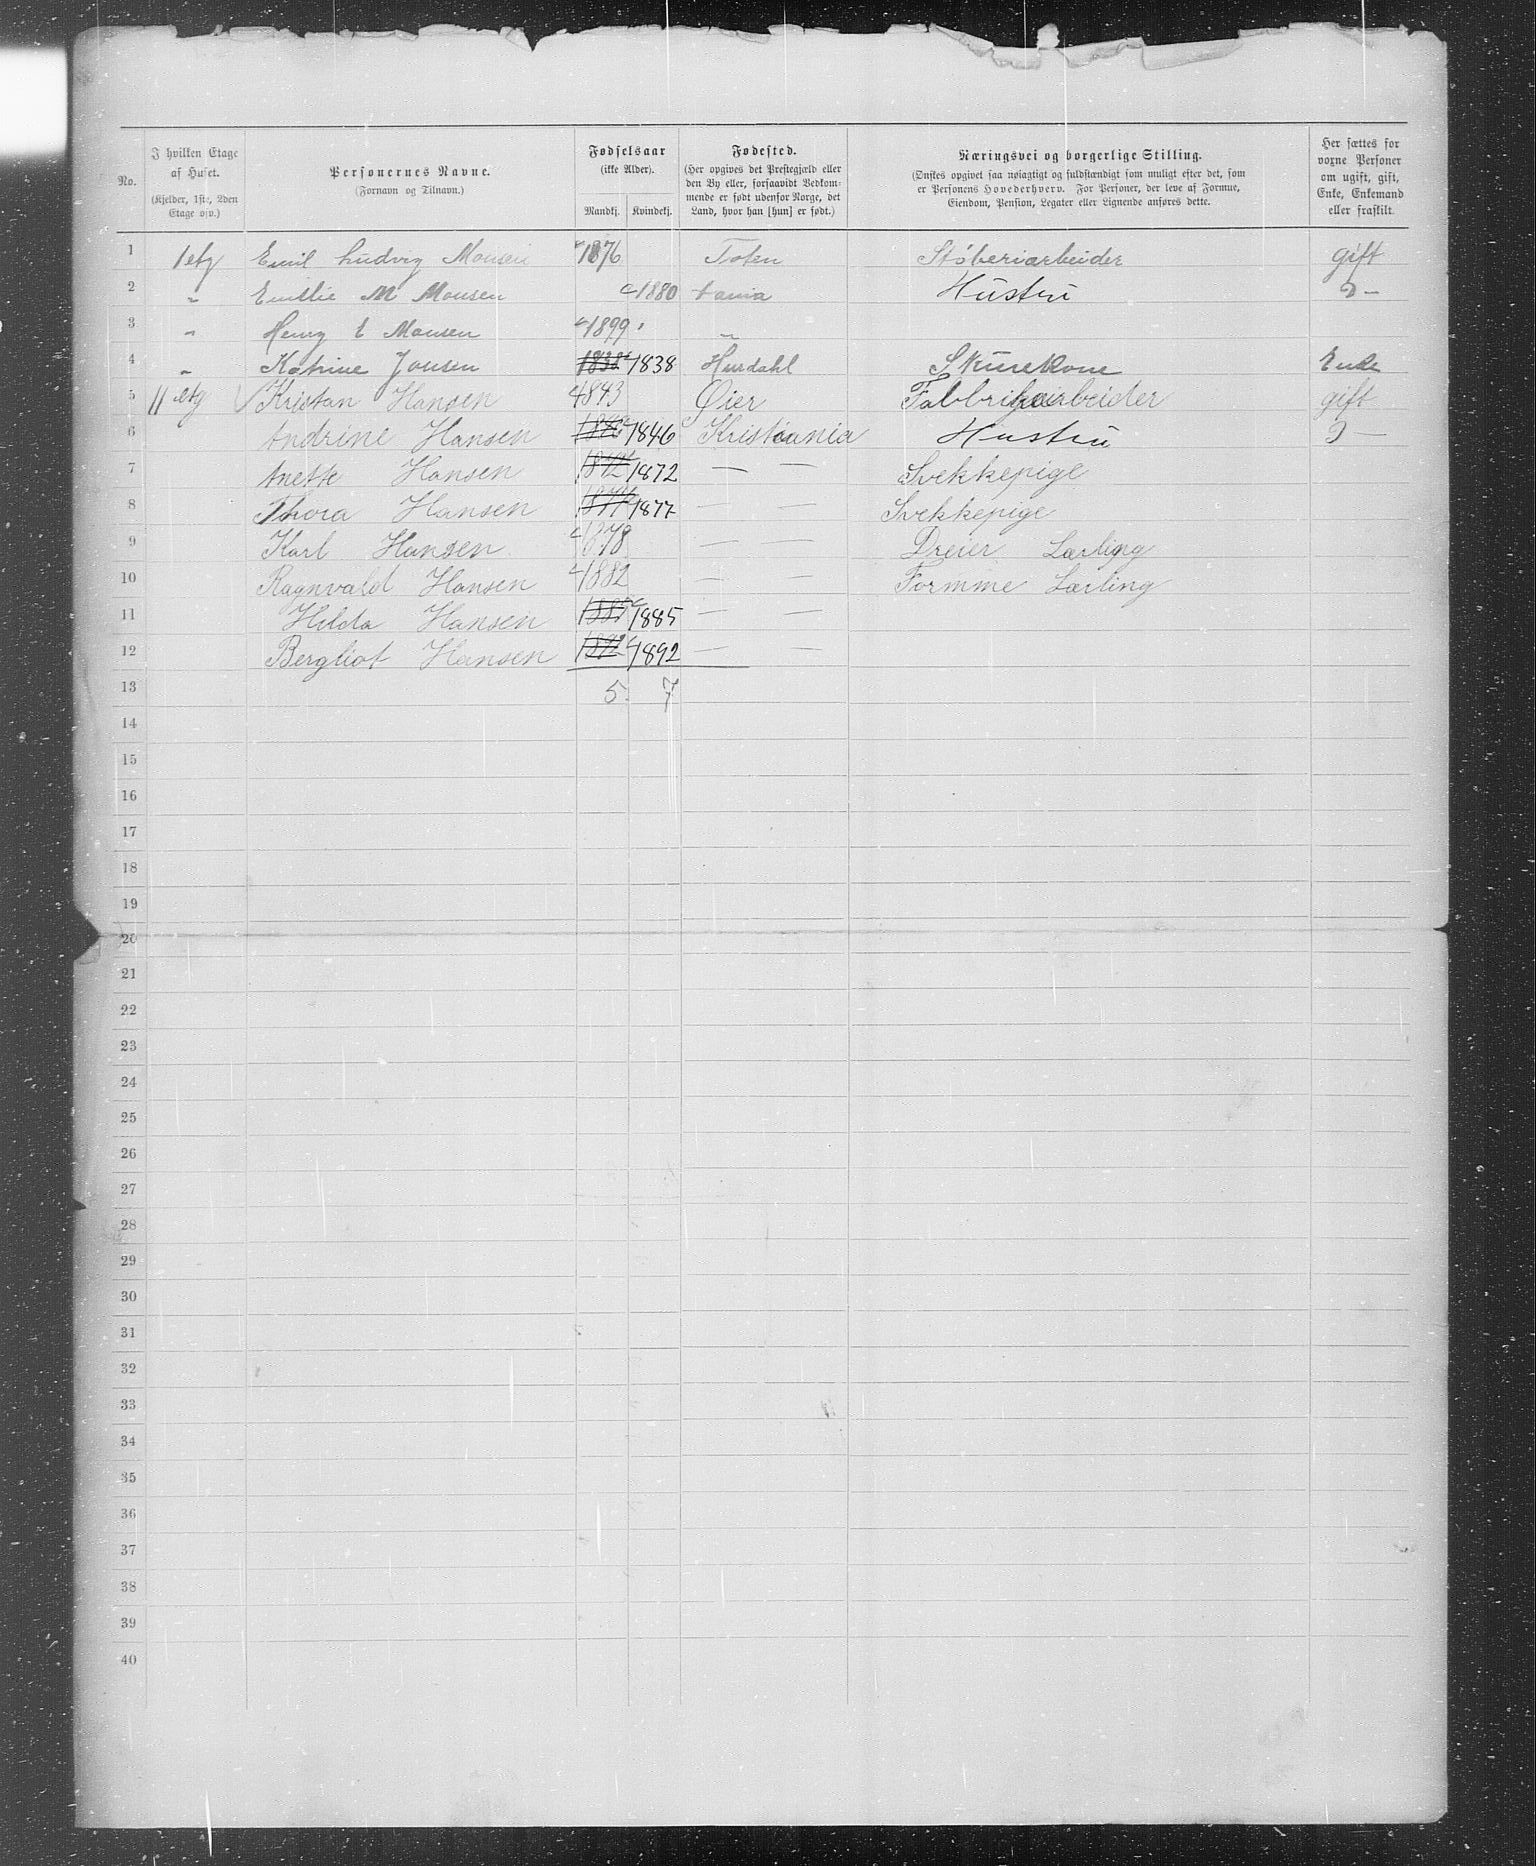 No. I hvilken Etage af Huset. (Kjelder, 1ste, 2den Etage osv.) Personernes Navne. (Fornavn og Tilnavn.) Fødselsaar (ikke Alder). Mandkj. Kvindekj. Fødested. (Her opgives det Prestegjæld eller den By eller, forsaavidt Vedkommende er født udenfor Norge, det Land, hvor han [hun] er født.) Næringsvei og borgerlige Stilling. (Ønskes opgivet saa nøiagtigt og fuldstændigt som muligt efter det, som er Personens Hovederhverv. For Personer, der leve af Formue, Eiendom, Pension, Legater eller Lignende anføres dette. Her sættes for voxne Personer om ugift, gift, Enke, Enkemand eller fraskilt.
1 1 etg Emil Ludvig Monsen 1876 Toten Støberiarbeider gift
2 " Emilie M Monsen 1880 tania Hustru D -
3 " Henry E Monsen 1899 "
4 " Katrine Jonsen 1838 1838 Hurdahl Skurekone Enke
5 11 etg Kristan Hansen 1843 Øier Fabbrikarbeider gift
6 Andrine Hansen 1846 Kristiania Hustru D -
7 Anette Hansen 1872 1872 — — Svekkepige
8 Thora Hansen 1877 1877 — — Svekkepige
9 Karl Hansen 1878 — — Dreier Lærling
10 Ragnvald Hansen 1882 — — Formme Lærling
11 Hilda Hansen 1885 1885 — —
12 Bergliot Hansen 1892 1892 — —
13 5. 7
14
15
16
17
18
19
20
21
22
23
24
25
26
27
28
29
30
31
32
33
34
35
36
37
38
39
40